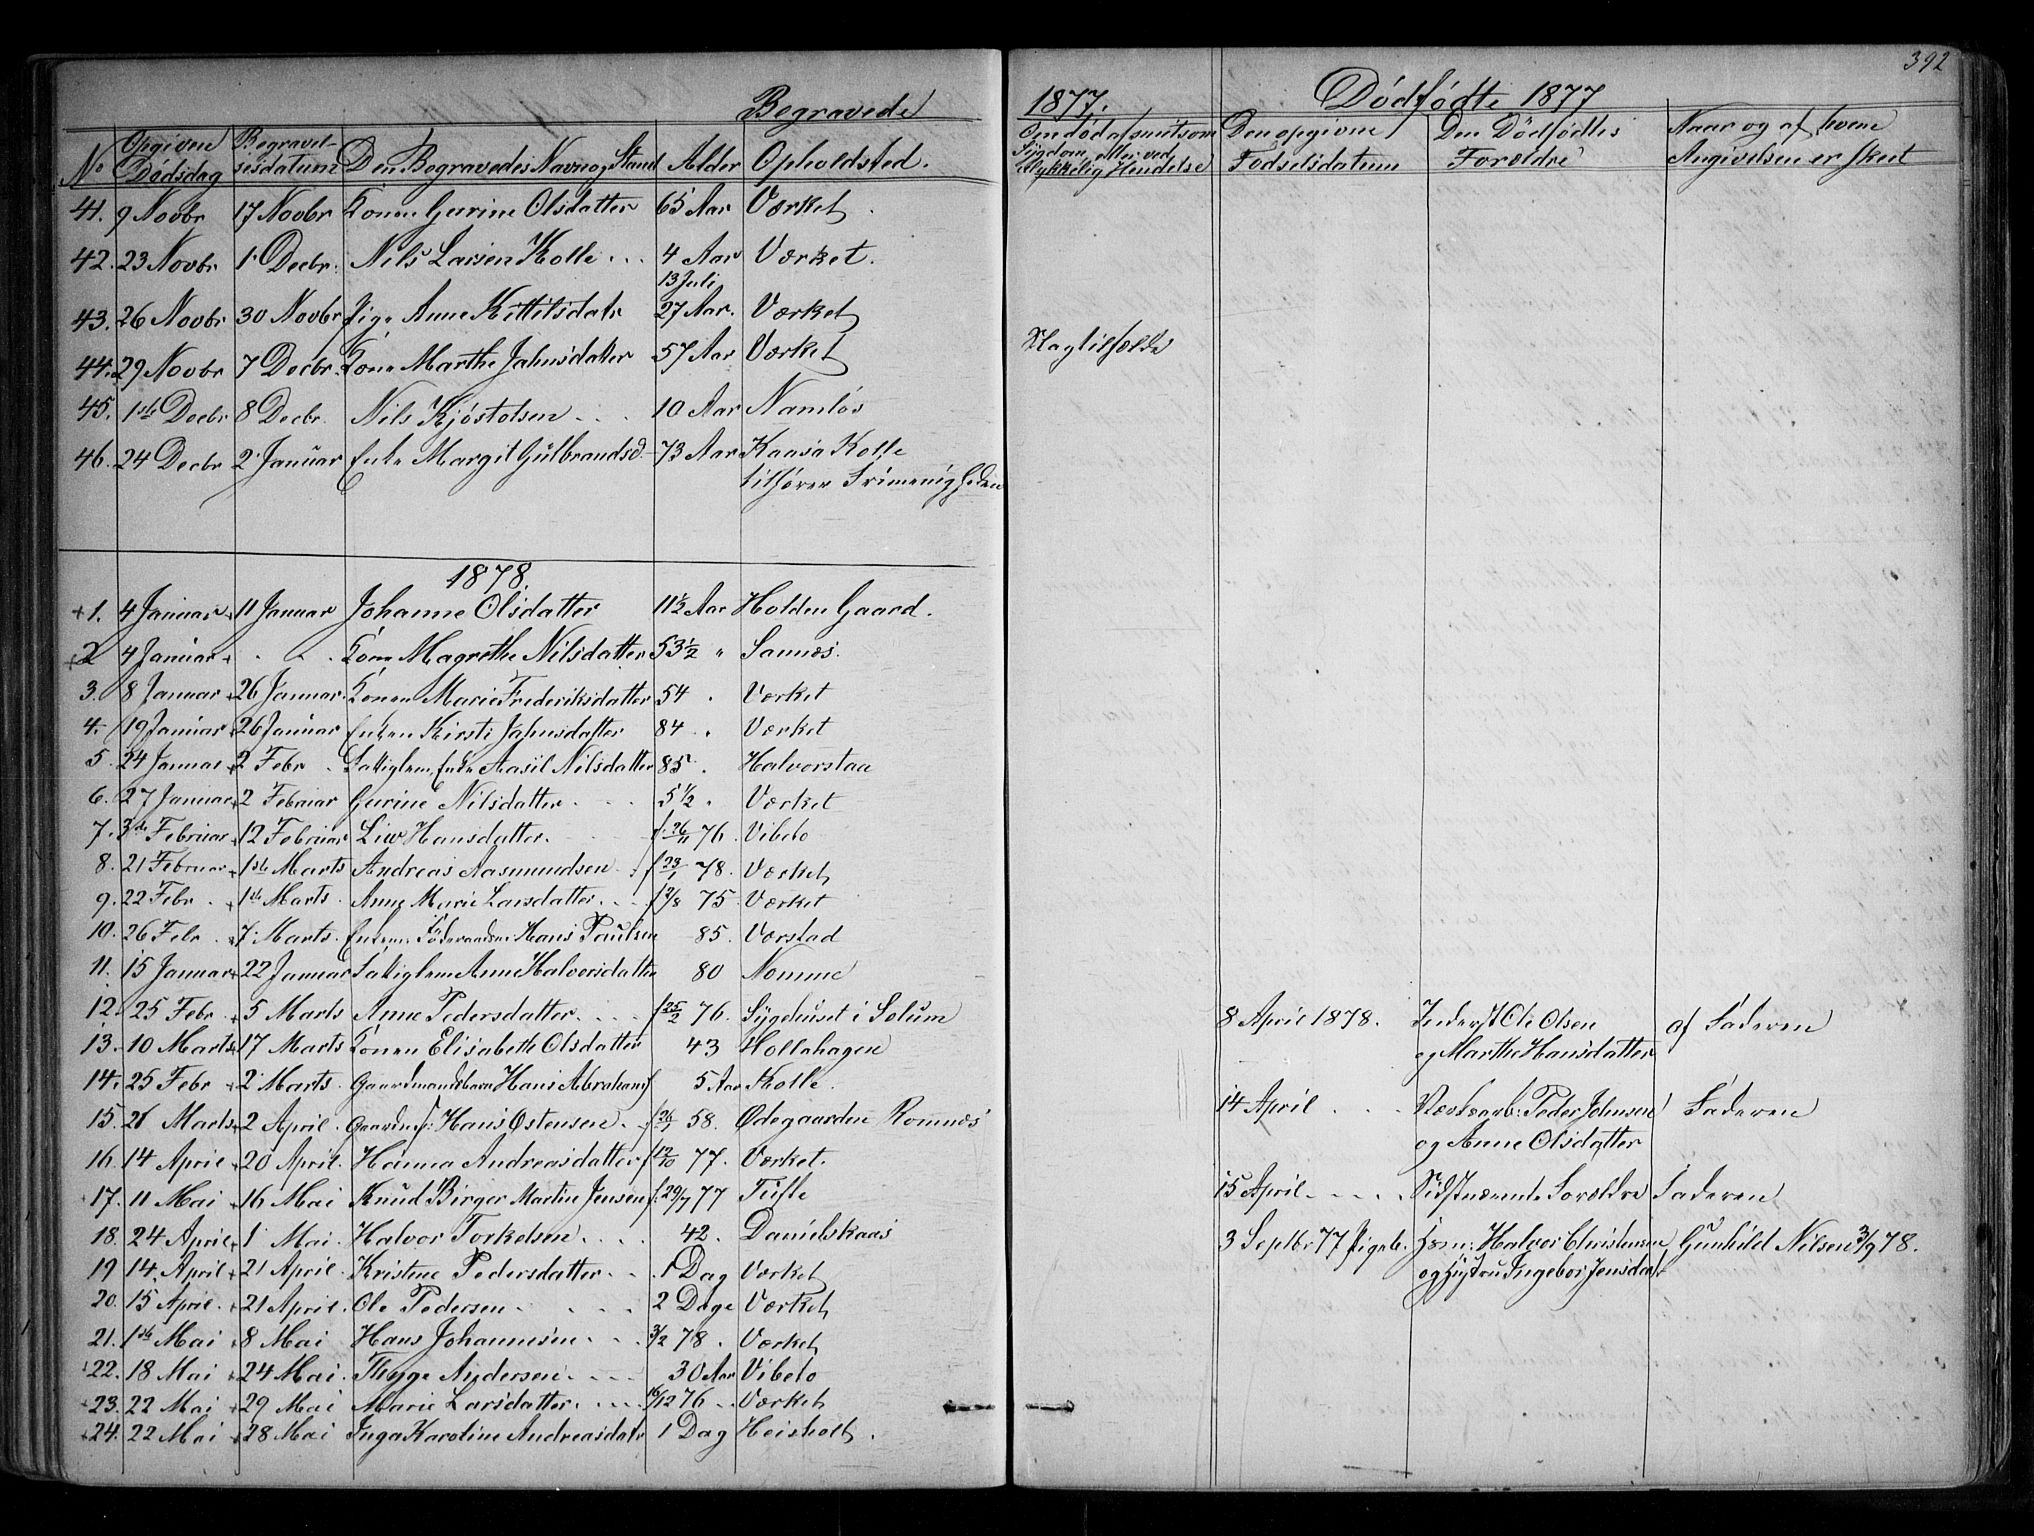 392
Begravede
No Opgiven Dødsdag Begravelsesdatum Den Begravedes Navn og Stand Alder Opholdsted.
41. 9 Novbr 17 Novbr Konen Gurine Olsdatter 65 Aar Værket
42. 23 Novbr 1. Decbr. Nils Larsen Kolle 4 Aar Værket.
13 Juli
43. 26 Novbr 30 Novbr Pige Anne Kittilsdatr 27 Aar. Værket
44. 29 Novbr 7 Decbr. Kone Marthe Jahnsdatter 57 Aar Værket
45. 1ste Decbr 8 Decbr. Nils Kjøstolsen 10 Aar Namløs
46. 24 Decbr 2. Januar Enke Margit Gulbrandsd. 73 Aar Kaasa Kolle
tilhører Frimenigheden
1878.
+1. 4 Januar 11 Januar Johanne Olsdatter 11½ Aar Holden Gaard.
+2 4 Januar Kone Magrethe Nilsdatter 53½ " Sannæs.
3. 8 Januar 26 Januar. Konen Marie Frederiksdatter 54 Værket
4. 19 Januar 26 Januar Enken Kirsti Jahnsdatter 84 Værket
5. 24 Januar 2 Febr. Fattiglem Enke Aasil Nilsdatter 85 Halvorstaa
6. 27 Januar 2 Februar Gurine Nilsdatter 5½ Værket
7. 3de Februar 12 Februar Liv Hansdatter. f. 26/11 76. Vibeto
8. 21 Februar 1ste Marts Andreas Aasmundsen f 23/1 78. Værket
9. 22 Febr 1ste Marts Anne Marie Larsdatter f 2/8 75 Værket
10. 26 Febr 7. Marts. Enkem. Føderaadsm. Hans Paulsen 85. Værstad
11. 15 Januar 22 Januar Fattiglem Anne Halvorsdatter 80 Nomme
12. 25 Febr 5 Marts Anne Pedersdatter f 25/2 76. Sygehuset i Solum
13. 10 Marts 17 Marts Konen Elisabeth Olsdatter 43 Hollahagen
14. 25 Febr 2. Marts. Gaardmandsbarn Hans Abrahams 5 Aar Kolle.
15. 26 Marts 2 April. Hans Østensen f 26/7 58. Ødegaarden Romnæs
16. 14 April 20 April. Hanna Andreasdatter f 12/10 77. Værket.
17. 11 Mai 16 Mai Knud Birger Martin Jensen f. 29/7 77 Tufte
18. 24 April 1 Mai. Halvor Torkelsen 42. Danielskaas
19 14 April 21 April. Kristine Pedersdatter 1 Dag Værket
20. 15 April. 21 April. Ole Pedersen 2 Dage Værket
21. 1ste Mai 8 Mai Hans Johannesen 3/2 78. Værket
22. 18 Mai 24 Mai. Thyge Andersen 30 Aar Vibeto
23. 22 Mai 29 Mai Marie Larsdatter. 16/12 76 Værket
24. 22 Mai 28 Mai Inga Karoline Andreasdatr 1 Dag Heisholt.
1877. Dødfødte 1877
Om død af smitsom Sygdom eller ved ulykkelig Hendelse Den opgivne Fødselsdatum Den Dødfødtes Forældre Naar og af hvem Angivelsen er skeet
Slagtilfælde
8 April 1878. Inderst Ole Olsen af Faderen
og Marthe Hansdatter
14 April Værksarb: Peder Johnsen Faderen
og Anne Olsdatter
15 April Sidstnævnte Forældre Faderen
3 Septbr 77 Pigeb. Halvor Christensen Gunhild Nilsen 3/9 78.
og Hustru Ingebor Jensdatr